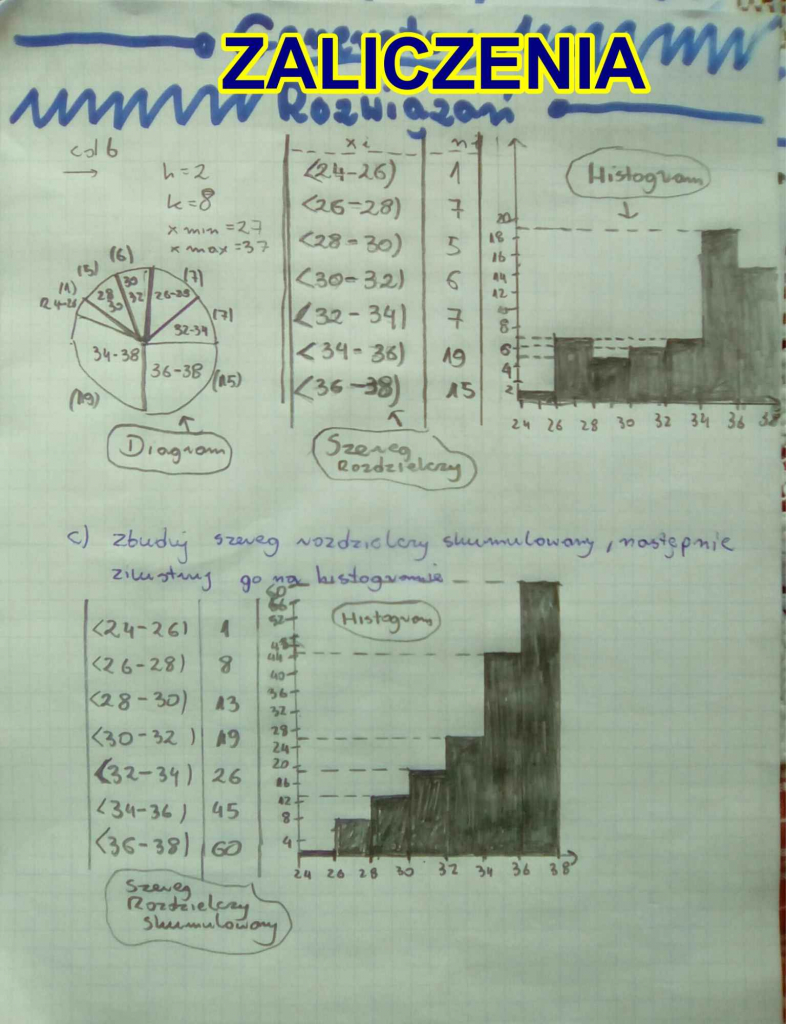 ZALICZENIA
Rozwiązań
cd b
h=2
k=8
x min = 27
x max = 37
xi ni
<24-26) 1
<26-28) 7
<28-30) 5
<30-32) 6
<32-34) 7
<34-36) 19
<36-38) 15
Szereg
Rozdzielczy
(6)
(5)
(1)
24-26
28
30
30
32
(7)
26-28
(7)
32-34
34-38
36-38
(19)
(15)
Diagram
Histogram
20
18
16
14
12
8
6
4
2
24 26 28 30 32 34 36 38
c) Zbuduj szereg rozdzielczy skumulowany, następnie
zilustruj go na histogramie
<24-26) 1
<26-28) 8
<28-30) 13
<30-32) 19
<32-34) 26
<34-36) 45
<36-38) 60
Szereg
Rozdzielczy
skumulowany
Histogram
60
66
52
48
44
40
36
32
28
24
20
16
12
8
4
24 26 28 30 32 34 36 38